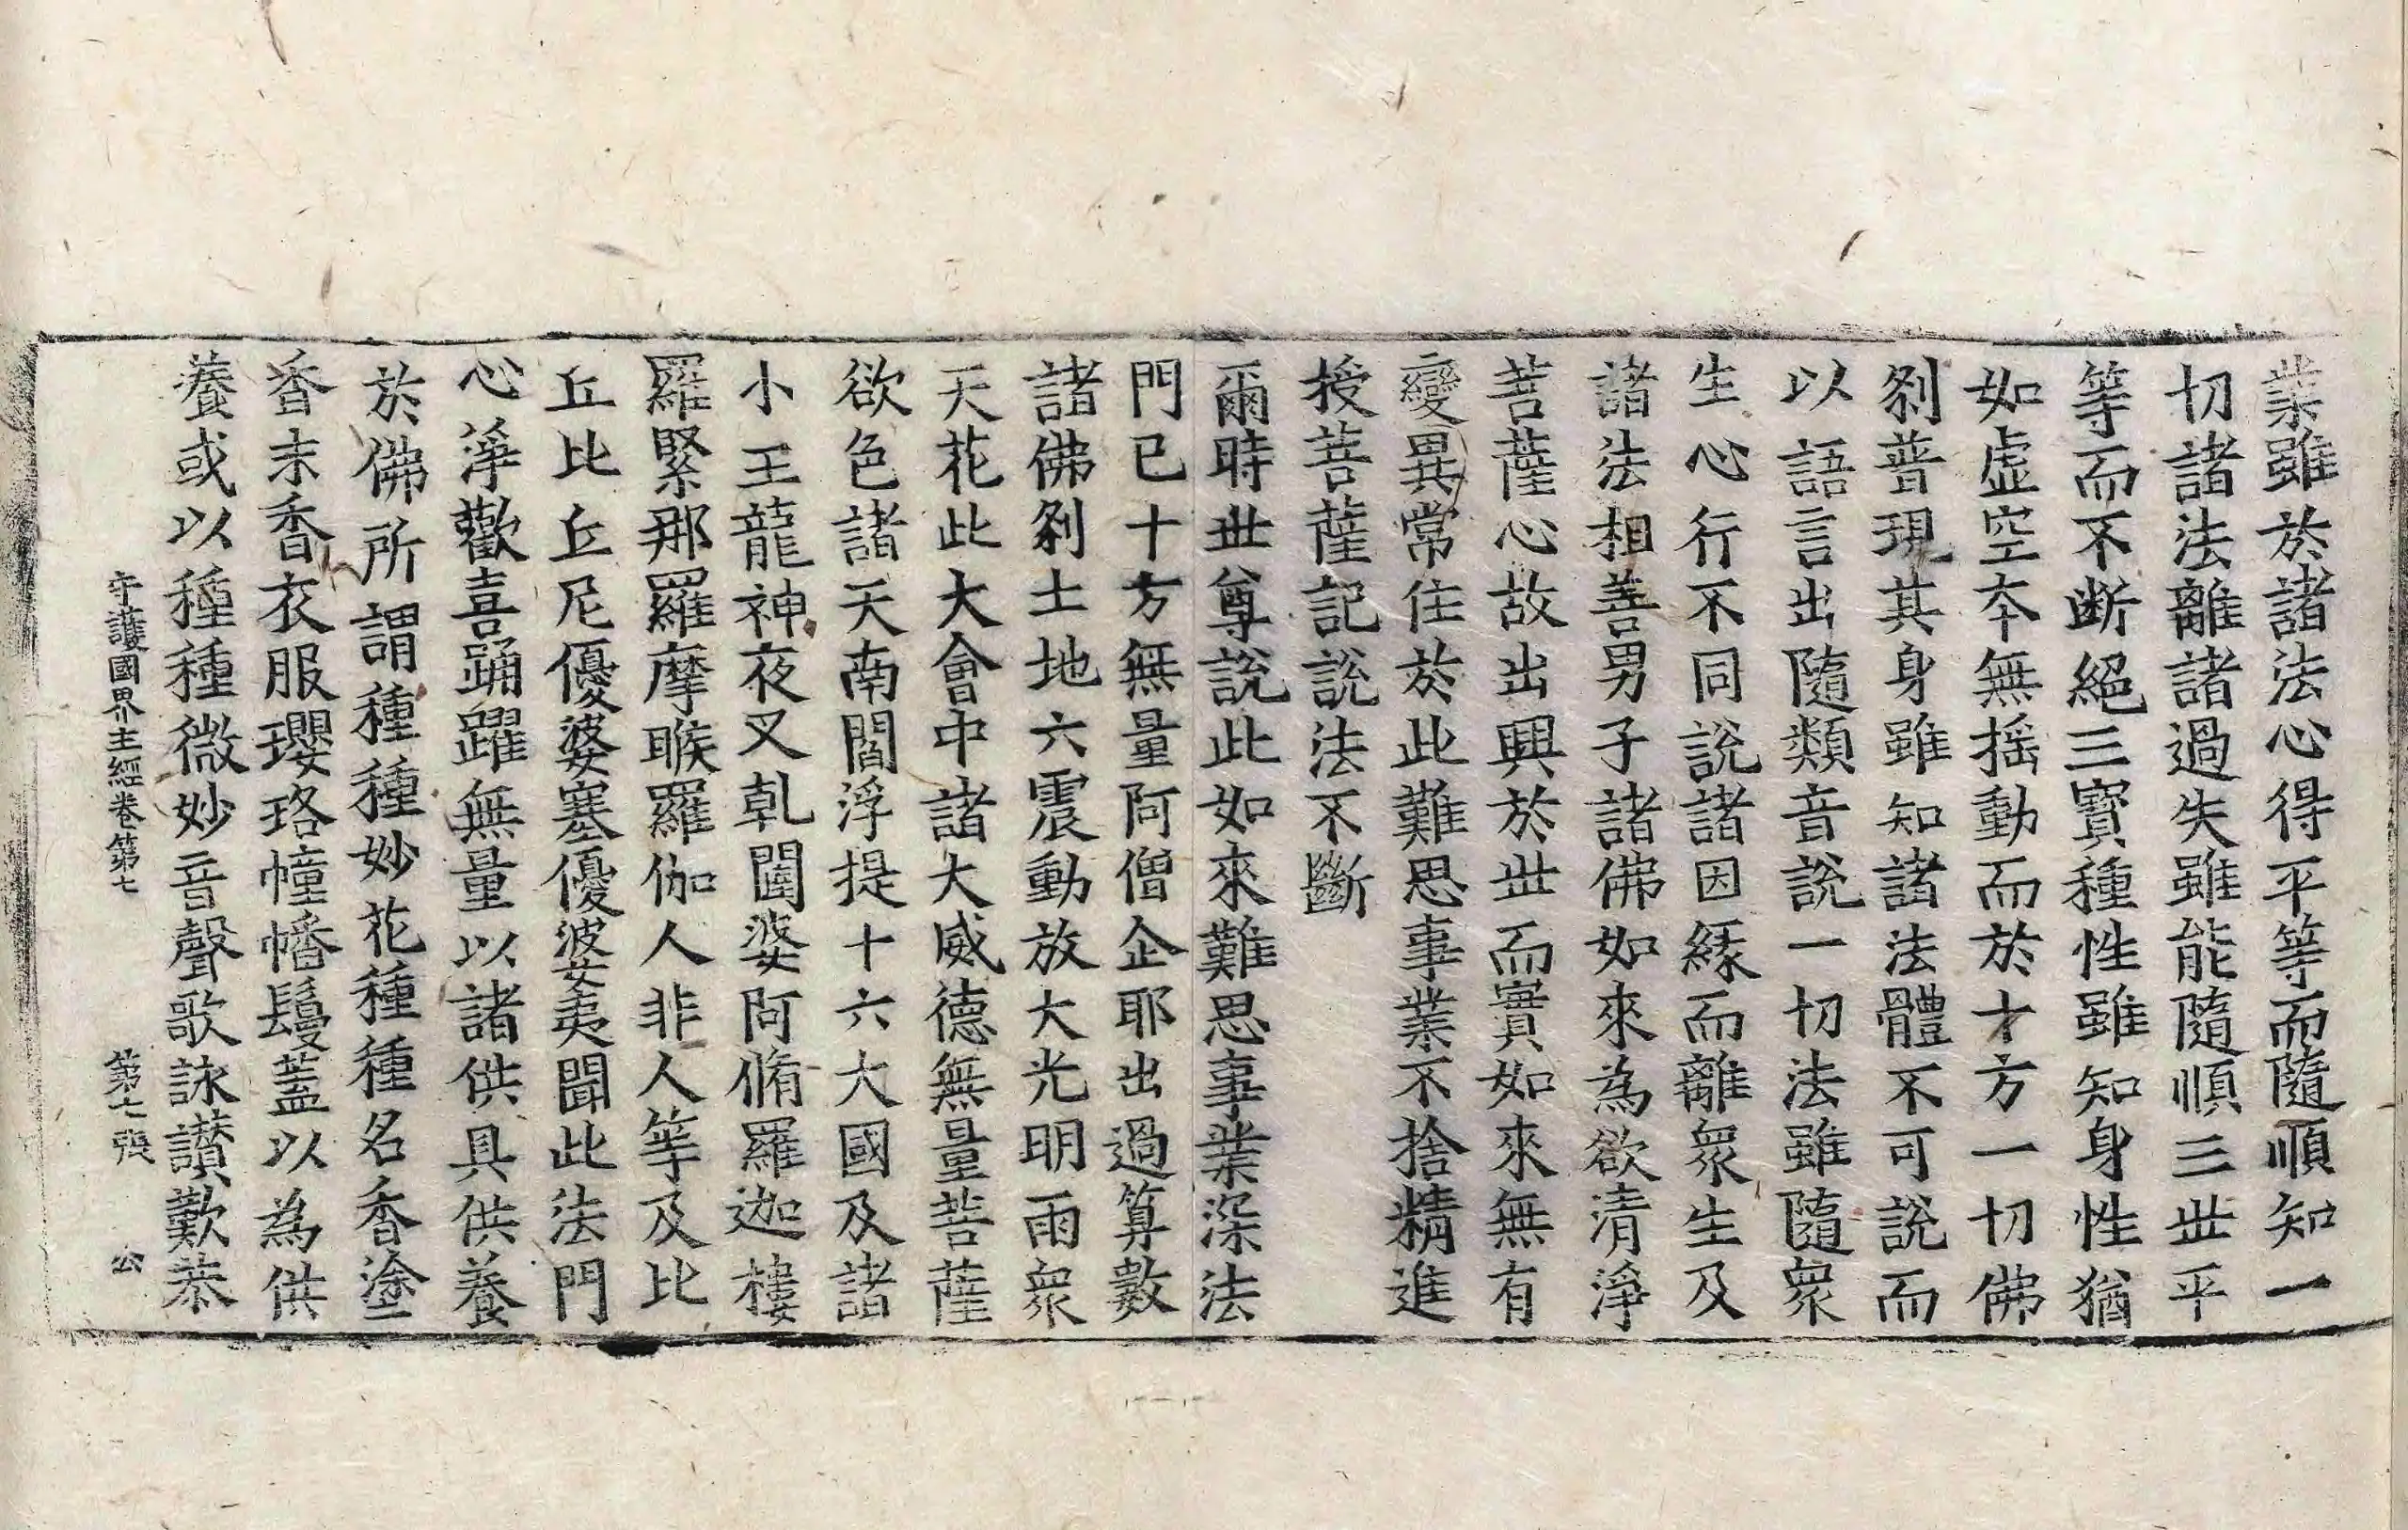 業雖於諸法心得平等而隨順知一
切諸法離諸過失雖能隨順三世平
等而不断絕三寶種性雖知身性猶
如虛空夲無揺動而於十方一切佛
刹普現其身雖知諸法體不可說而
以語言出隨類音說一切法雖隨衆
生心行不同說諸因緣而離衆生及
諸法相善男子諸佛如來為欲清淨
菩薩心故出興於世而實如來無有
變異常住於此難思事業不捨精進
授菩薩記說法不斷
爾時世尊說此如來難思事業深法
門已十方無量阿僧企耶出過算數
諸佛刹土地六震動放大光明雨衆
天花此大會中諸大威德無量菩薩
欲色諸天南閻浮提十六大國及諸
小王龍神夜叉乹闥婆阿脩羅迦樓
羅緊那羅摩睺羅伽人非人等及比
丘比丘尼優婆塞優婆夷聞此法門
心淨歡喜踊躍無量以諸供具供養
於佛所謂種種妙花種種名香塗
香末香衣服瓔珞幢幡鬘盖以為供
養或以種種微妙音聲歌詠讃歎恭
守護國界主經卷第七 第七張 公